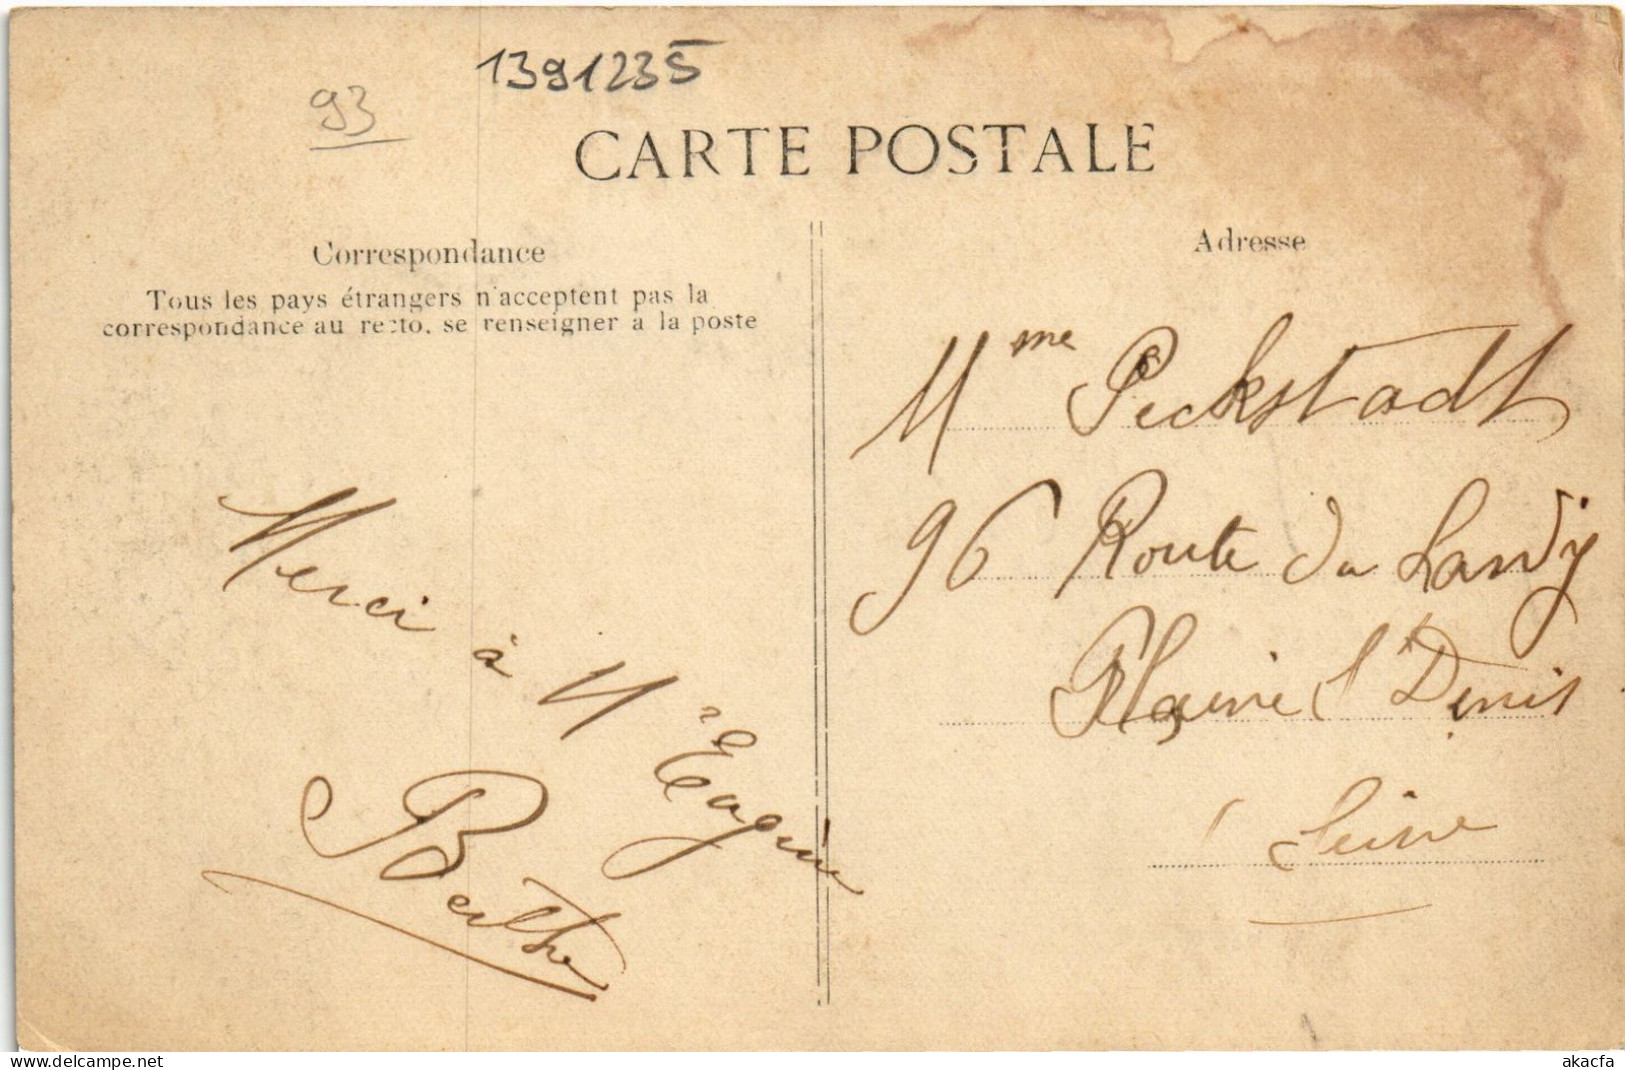 93
1391235
CARTE POSTALE
Correspondance
Tous les pays étrangers n'acceptent pas la
correspondance au recto, se renseigner a la poste
Adresse
Mme Peckstadt
96 Route du Landy
Plaine St Denis
Seine
Merci à Mr
Berthe
www.delcampe.net
akacfa